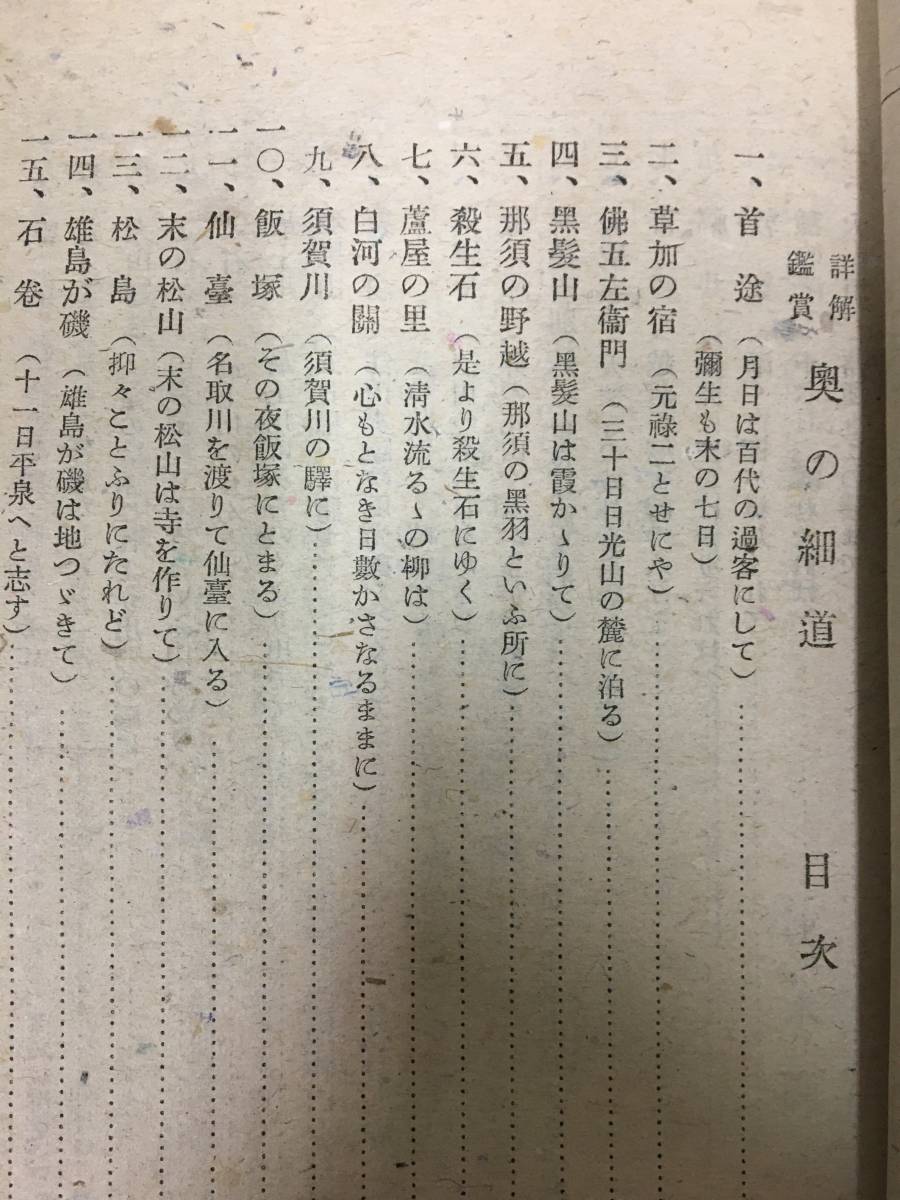 詳解
鑑賞
奥の細道 目次
一、首途（月日は百代の過客にして）
（彌生も末の七日）
二、草加の宿（元祿二とせにや）
三、佛五左衞門（三十日日光山の麓に泊る）
四、黑髮山（黑髮山は霞かゝりて）
五、那須の野越（那須の黑羽といふ所に）
六、殺生石（是より殺生石にゆく）
七、蘆屋の里（淸水流るゝの柳は）
八、白河の關（心もとなき日數かさなるままに）
九、須賀川（須賀川の驛に）
一〇、飯塚（その夜飯塚にとまる）
一一、仙臺（名取川を渡りて仙臺に入る）
一二、末の松山（末の松山は寺を作りて）
一三、松島（抑々ことふりにたれど）
一四、雄島が磯（雄島が磯は地つゞきて）
一五、石卷（十一日平泉へと志す）